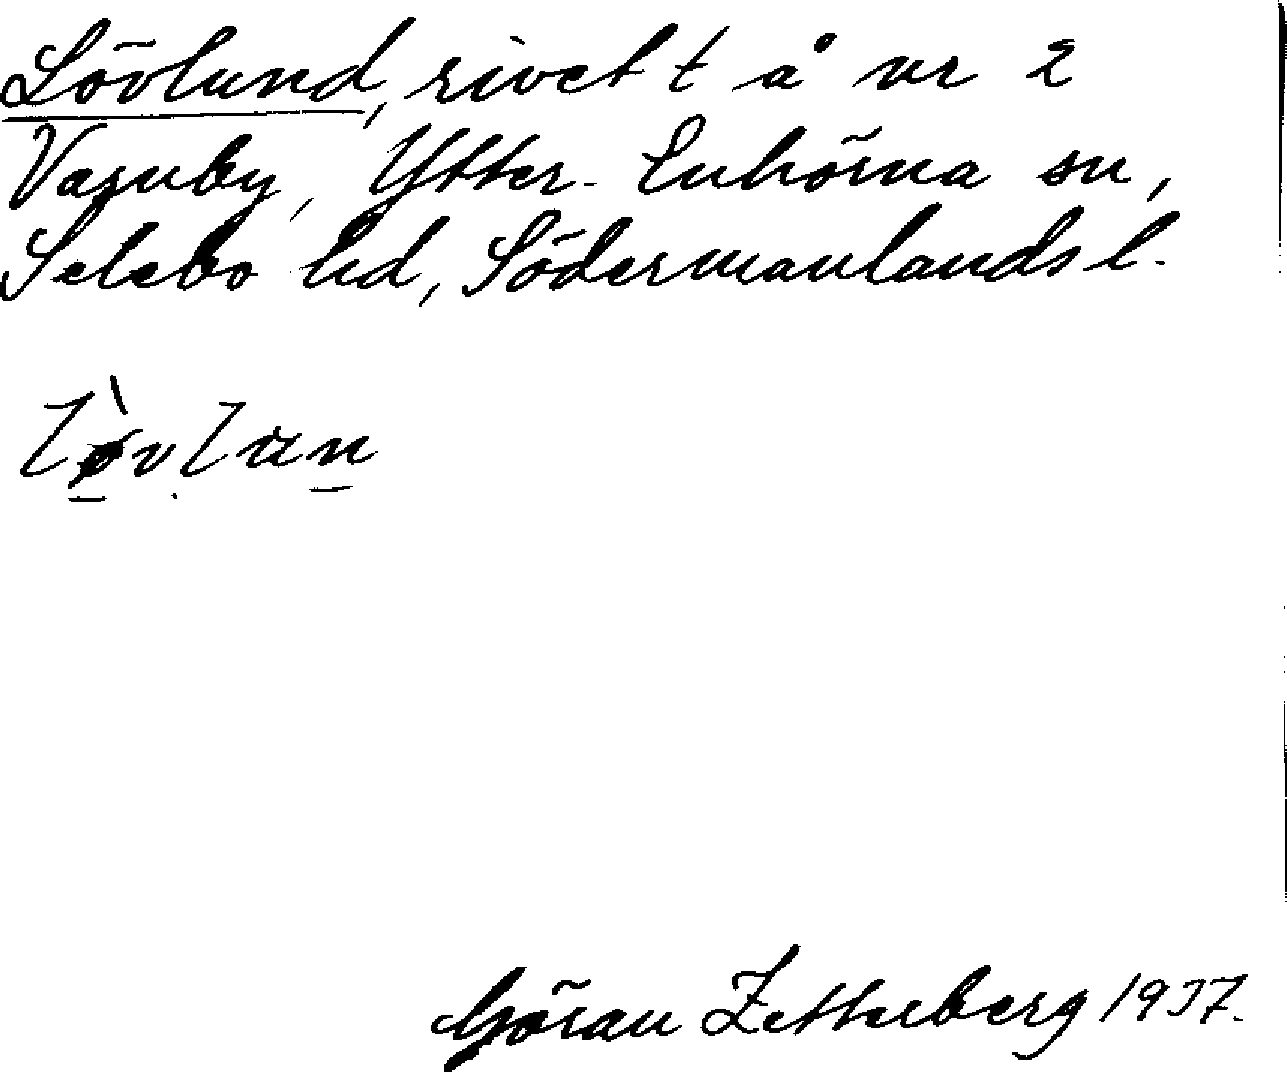 Lövlund, rivet t å nr 2
Vagnby, Ytter-Enhörna sn,
Selebo hd, Södermanlands l.
Göran Zetterberg 1937.